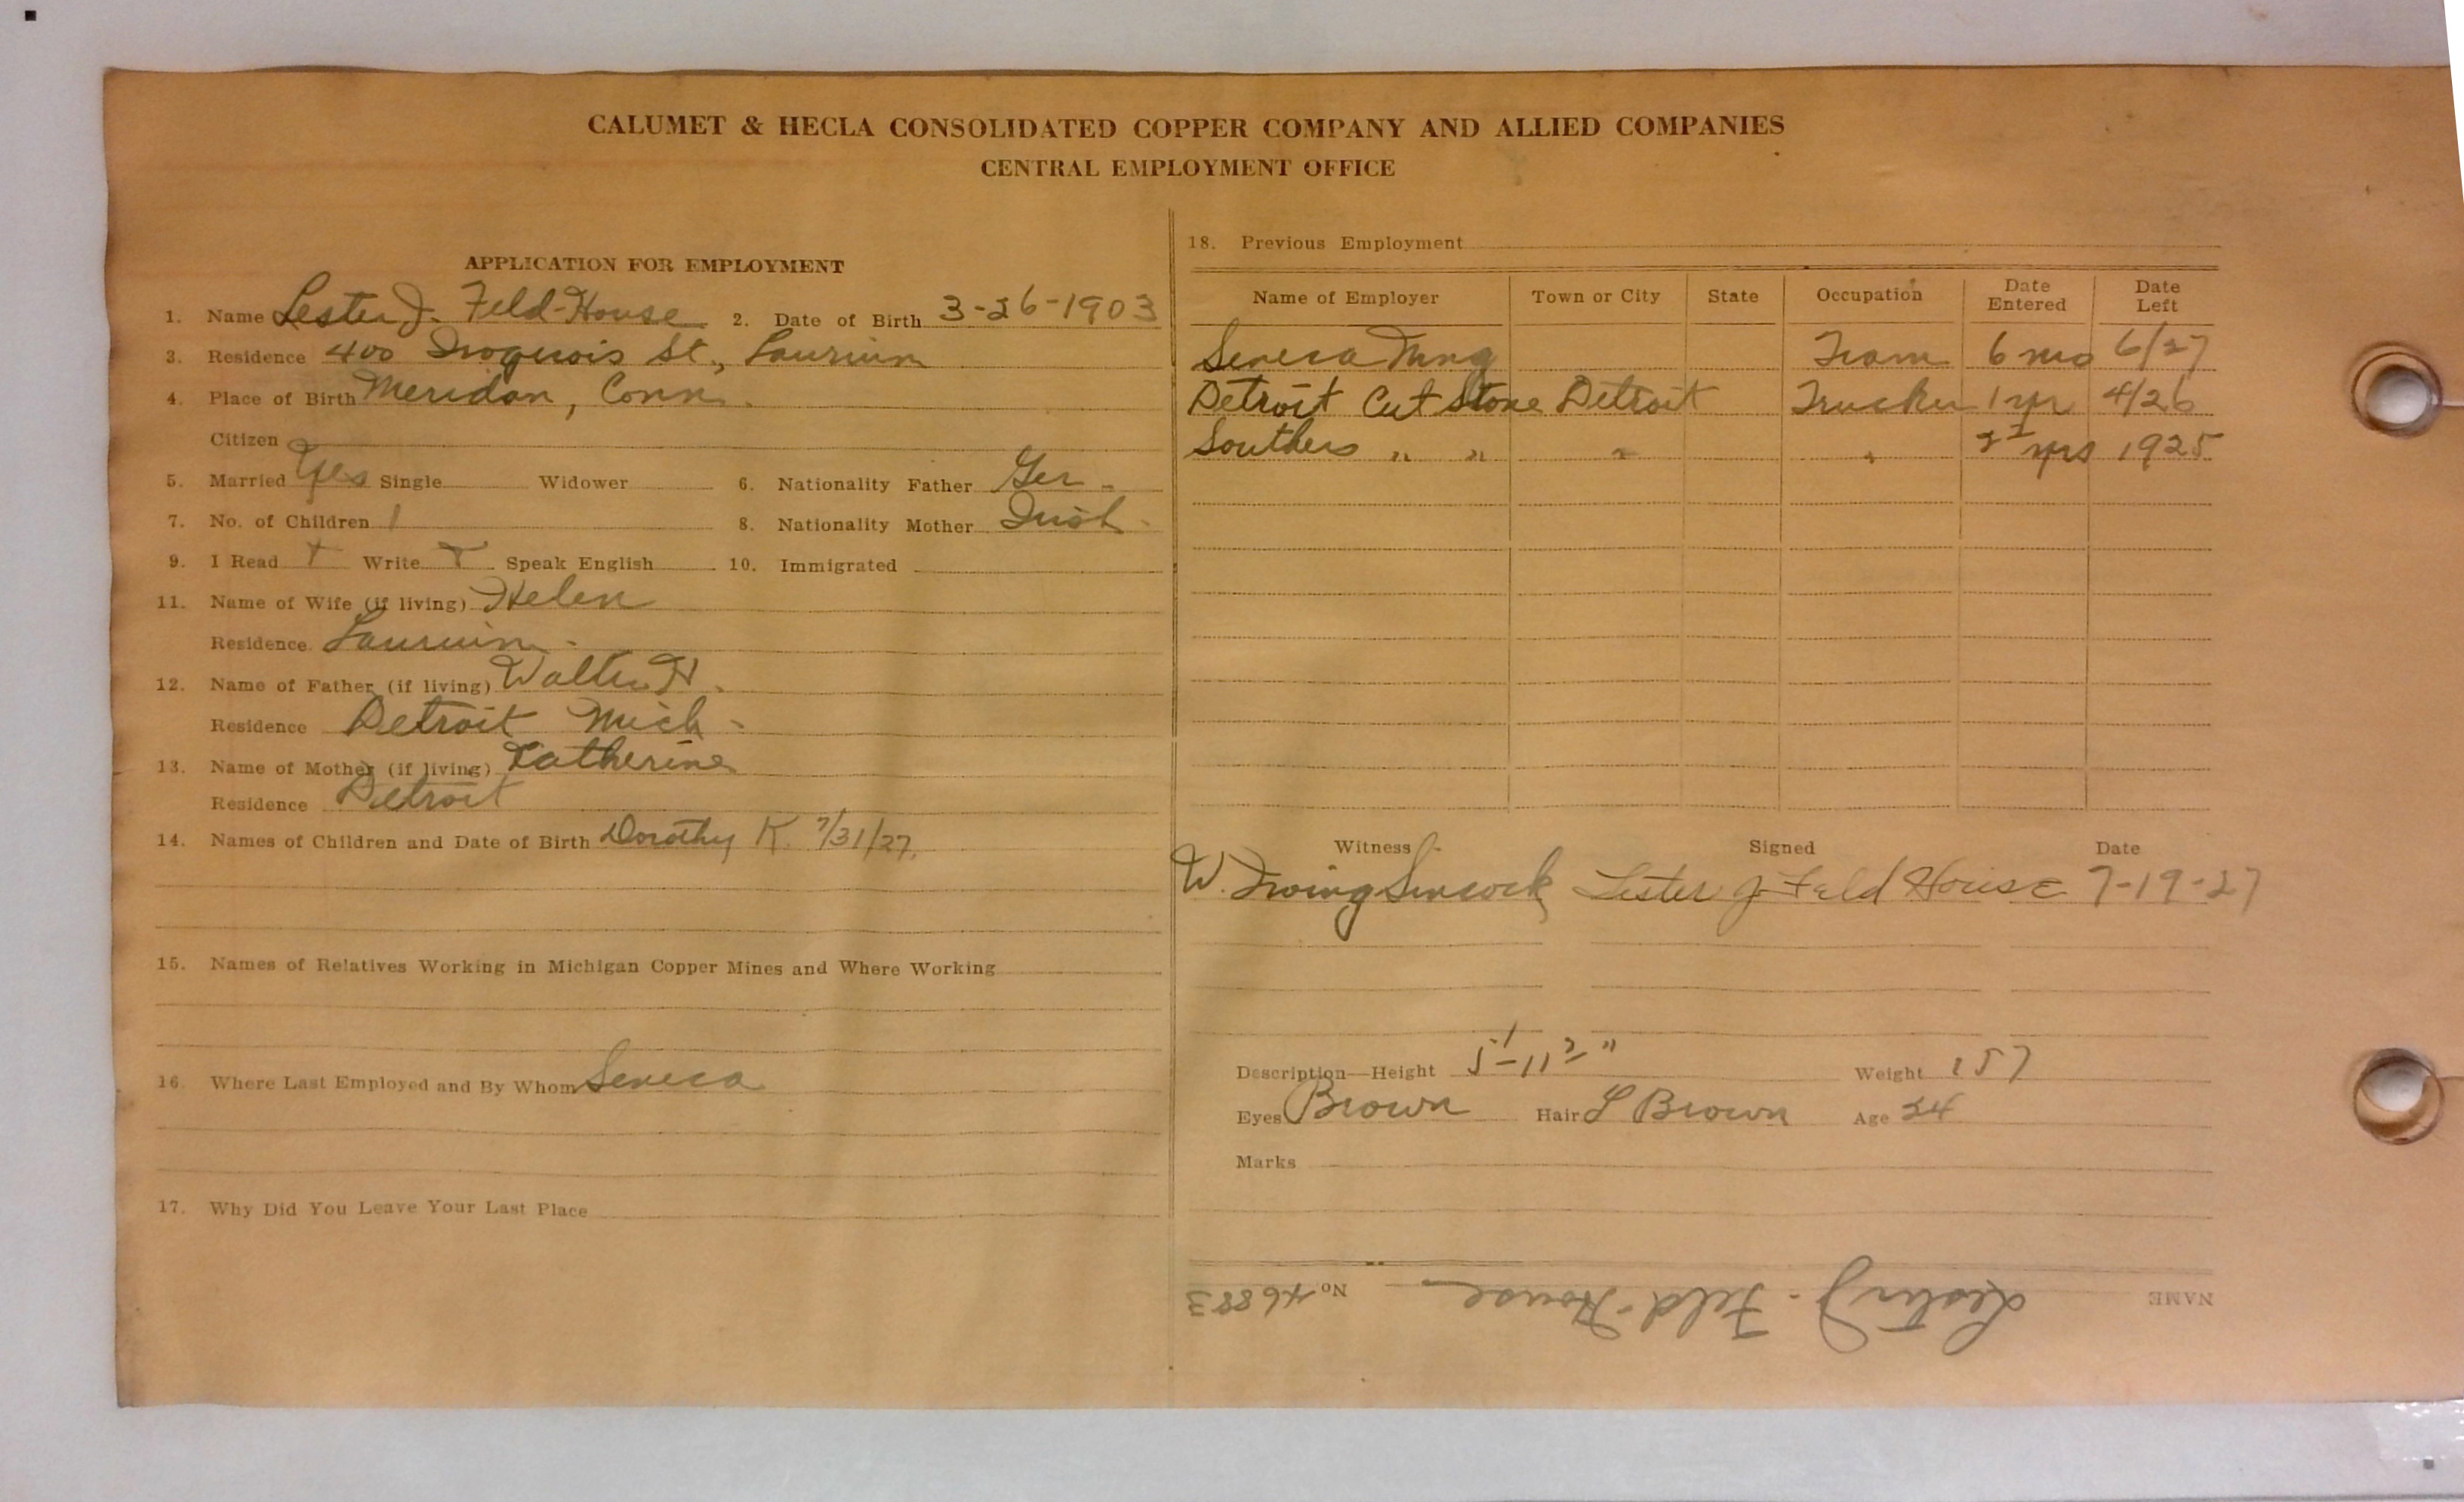 CALUMET & HECLA CONSOLIDATED COPPER COMPANY AND ALLIED COMPANIES
CENTRAL EMPLOYMENT OFFICE
APPLICATION FOR EMPLOYMENT
1. Name Lester J. Feld-House 2. Date of Birth 3-26-1903
3. Residence 400 Iroquois St., Laurium
4. Place of Birth Meridan, Conn.
Citizen
5. Married Yes Single Widower 6. Nationality Father Ger.
7. No. of Children 1 8. Nationality Mother Irish.
9. I Read Write Speak English 10. Immigrated
11. Name of Wife (if living) Helen
Residence Laurium
12. Name of Father (if living) Walter H.
Residence Detroit Mich
13. Name of Mother (if living) Katherine
Residence Detroit
14. Names of Children and Date of Birth Dorothy K. 7/31/27.
15. Names of Relatives Working in Michigan Copper Mines and Where Working
16. Where Last Employed and By Whom Seneca
17. Why Did You Leave Your Last Place
18. Previous Employment
Name of Employer Town or City State Occupation Date Entered Date Left
Seneca Mng Tram 6 mo 6/27
Detroit Cut Stone Detroit Trucker 1 yr 4/26
Southers " " " " yrs 1925
Witness Signed Date
W. Irving Sincock Lester J Feld House 7-19-27
Description—Height 5'-11 " Weight 157
Eyes Brown Hair L Brown Age 24
Marks
NAME Lester J. Feld-House No 46883